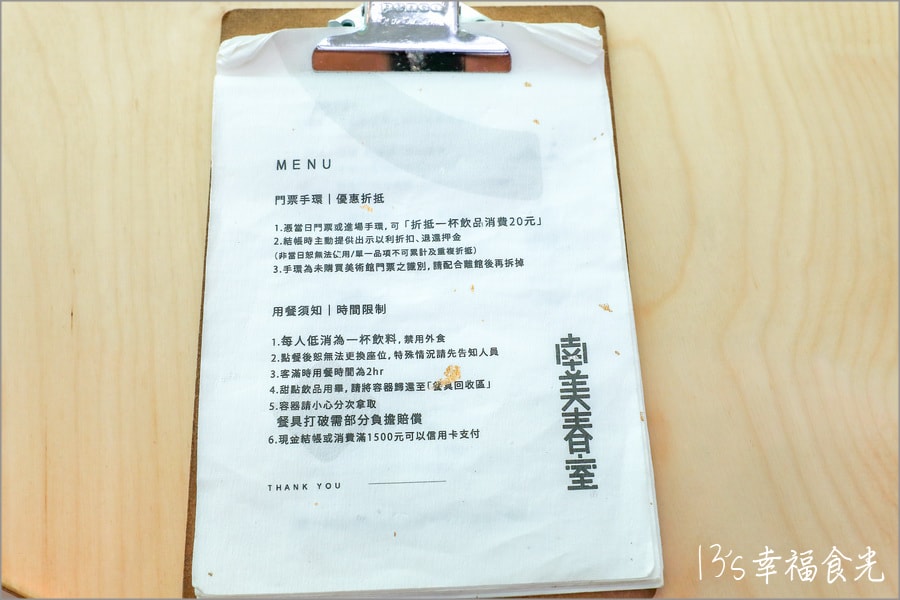 MENU
門票手環｜優惠折抵
1.憑當日門票或進場手環, 可「折抵一杯飲品消費20元」
2.結帳時主動提供出示以利折扣、退還押金
(非當日恕無法使用/單一品項不可累計及重複折抵)
3.手環為未購買美術館門票之識別, 請配合離館後再拆掉
用餐須知｜時間限制
1.每人低消為一杯飲料, 禁用外食
2.點餐後恕無法更換座位, 特殊情況請先告知人員
3.客滿時用餐時間為2hr
4.甜點飲品用畢, 請將容器歸還至「餐具回收區」
5.容器請小心分次拿取
餐具打破需部分負擔賠償
6.現金結帳或消費滿1500元可以信用卡支付
THANK YOU
南美春室
13's幸福食光